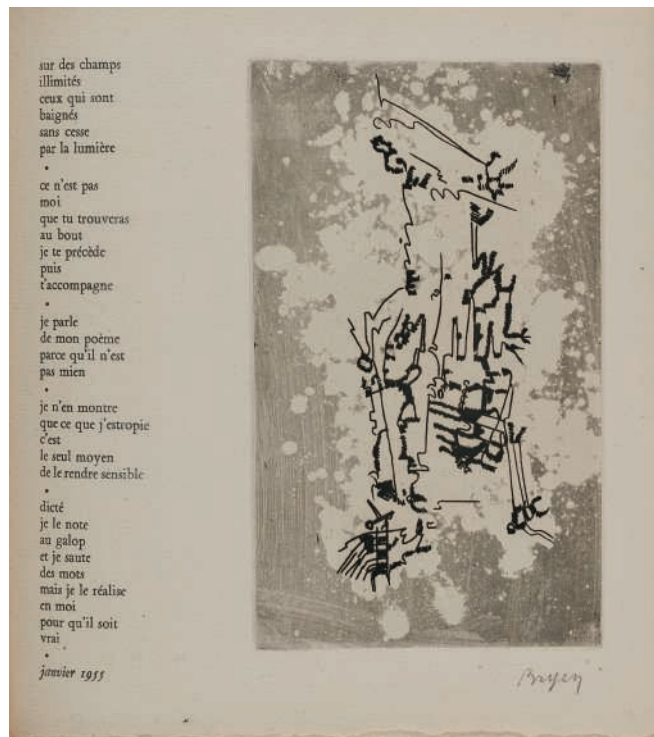 sur des champs
illimités
ceux qui sont
baignés
sans cesse
par la lumière
•
ce n'est pas
moi
que tu trouveras
au bout
je te précède
puis
t'accompagne
•
je parle
de mon poème
parce qu'il n'est
pas mien
•
je n'en montre
que ce que j'estropie
c'est
le seul moyen
de le rendre sensible
•
dicté
je le note
au galop
et je saute
des mots
mais je le réalise
en moi
pour qu'il soit
vrai
•
janvier 1955
Bryen